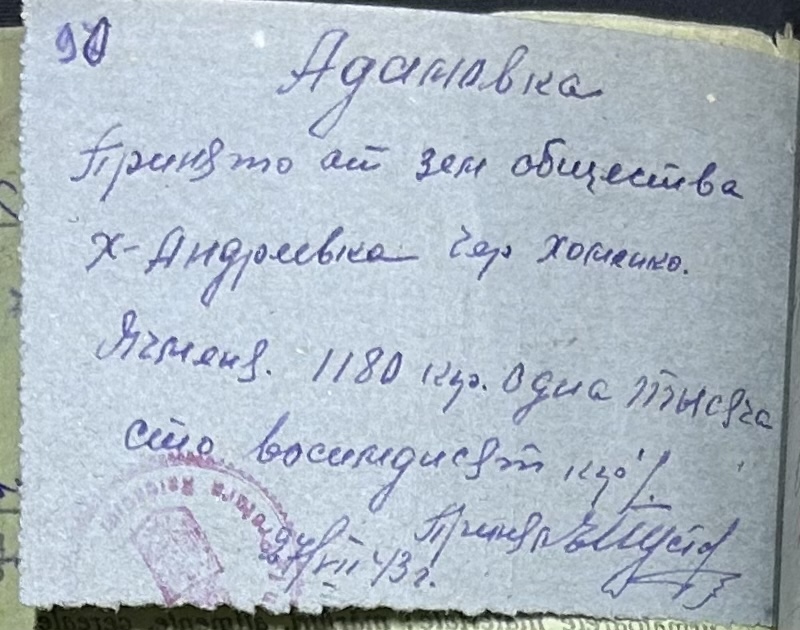 90
Адамовка
Принято от зем общества
х-Андреевка чер Хоменко.
Ячменя. 1180 кгр. Одна тысяча
сто восимдисят кгр.
Принял
24/VIII 43 г.